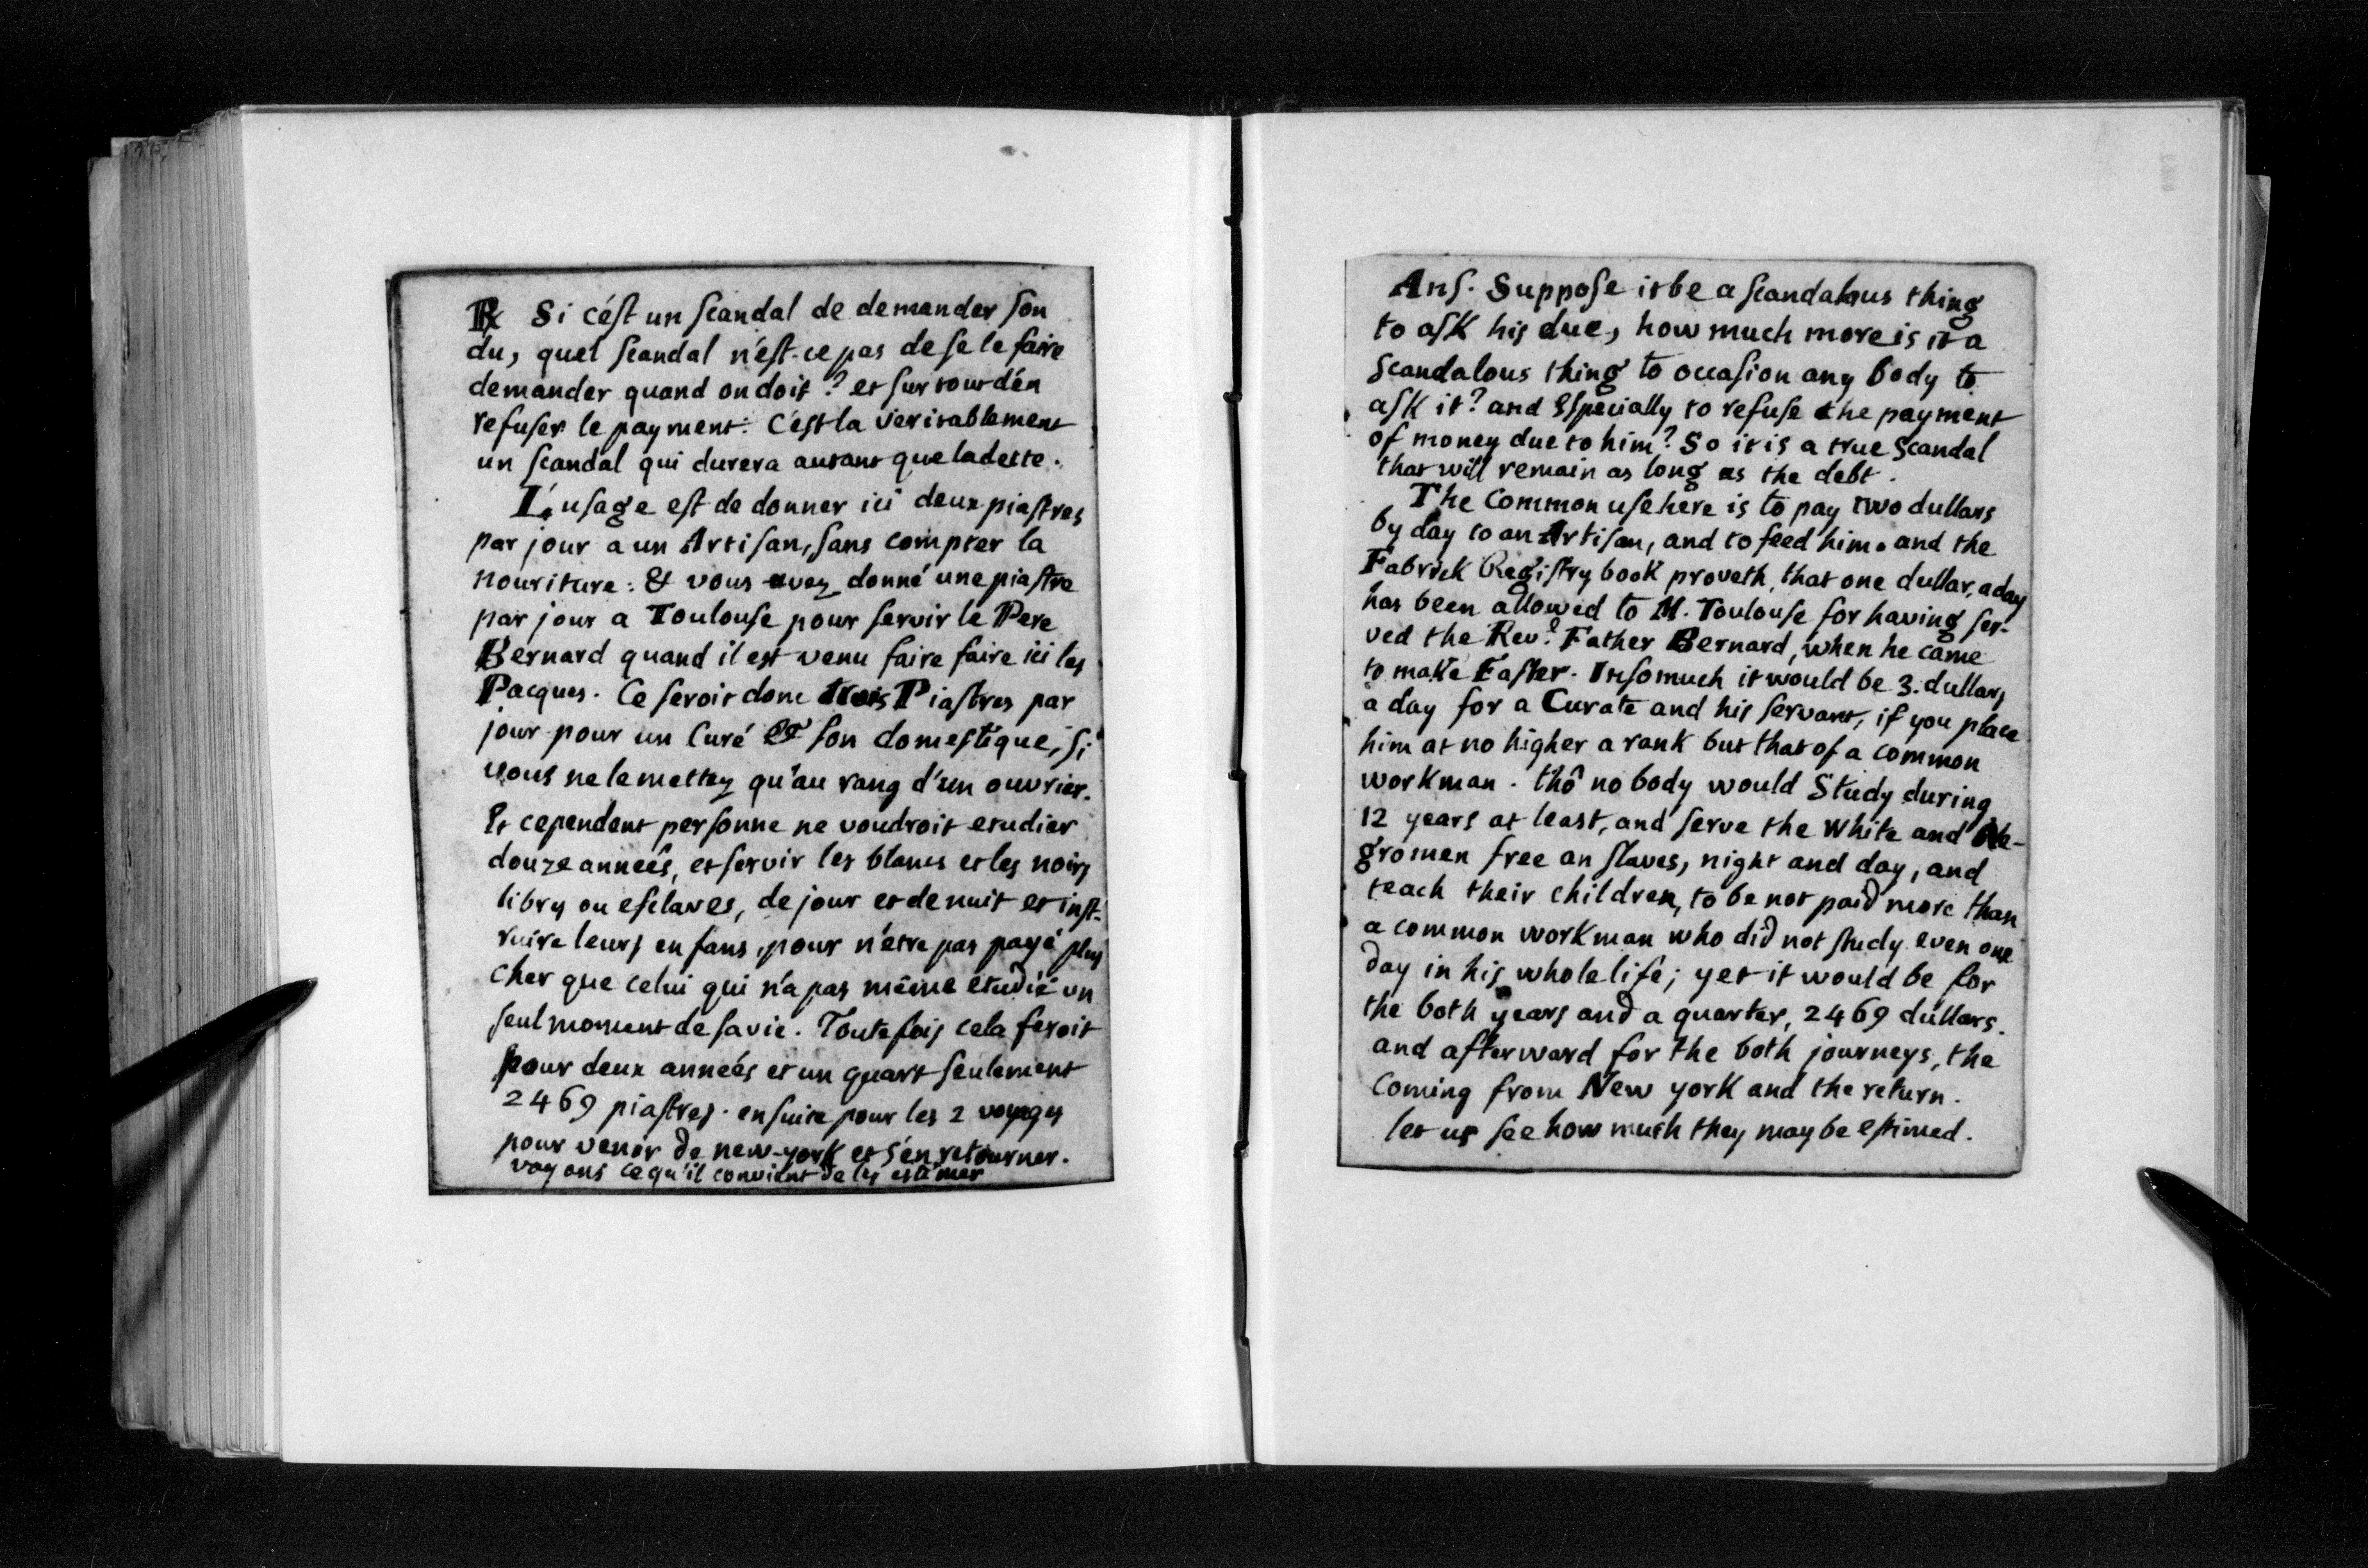 R Si cést un ſcandal de demander ſon
du, quel ſcandal n'éſt-ce pas de ſe le faire
demander quand on doit? et ſur tout d'én
refuſer le payment: C'éſt la veritablement
un ſcandal qui durera autant que ladette.
L'uſage eſt de donner ici deux piaſtres
par jour a un Artiſan, ſans compter la
nouriture: & vous avez donné une piaſtre
par jour a Toulouſe pour ſervir le Pere
Bernard quand il est venu faire faire ici les
Pacques. Ce ſeroit donc trois Piaſtres par
jour pour un Curé & ſon domeſtique, ſi
vous ne le mettez qu'au rang d'un ouvrier.
Et cependant perſonne ne voudroit etudier
douze anneés, et ſervir les blancs et les noirs
libres ou eſclaves, de jour et de nuit et inſt-
ruire leurs enfans, pour n'etre pas payé plus
cher que celui qui n'a pas même étudié un
ſeul moment de ſa vie. Toutefois cela feroit
pour deux anneés et un quart ſeulement
2469 piaſtres. enſuite pour les 2 voyages
pour venir de new-york et s'én retourner.
voyons ce qu'il convient de les estimer
Anſ. Suppoſe it be a ſcandalous thing
to aſk his due, how much more is it a
Scandalous thing to occaſion any body to
aſk it? and Eſpecially to refuſe the payment
of money due to him? So it is a true Scandal
that will remain as long as the debt.
The Common uſe here is to pay two dullars
by day to an Artiſan, and to feed him. and the
Fabrick Regiſtry book proveth, that one dullar, a day
has been allowed to M. Toulouſe for having ſer-
ved the Rev.d Father Bernard, when he came
to make Eaſter. Inſomuch it would be 3. dullars
a day for a Curate and his ſervant, if you place
him at no higher a rank but that of a common
workman. thô no body would Study during
12 years at least, and ſerve the white and Ne-
gromen free an ſlaves, night and day, and
teach their children, to be not paid more than
a common workman who did not ſtudy even one
day in his whole life; yet it would be for
the both years and a quarter, 2469 dullars.
and afterward for the both journeys, the
Coming from New york and the return.
let us ſee how much they may be eſtimed.